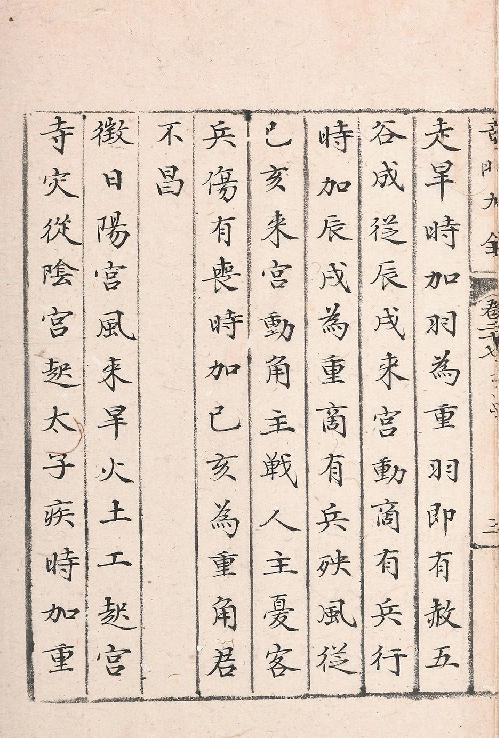 走旱時加羽為重羽即有赦五
谷成從辰戌来宮動商有兵行
時加辰戌為重商有兵殃風從
巳亥来宮動角主戦人主憂客
兵傷有喪時加巳亥為重角君
不昌
徴日陽宮風来旱火土工起宮
寺灾從陰宮起太子疾時加重